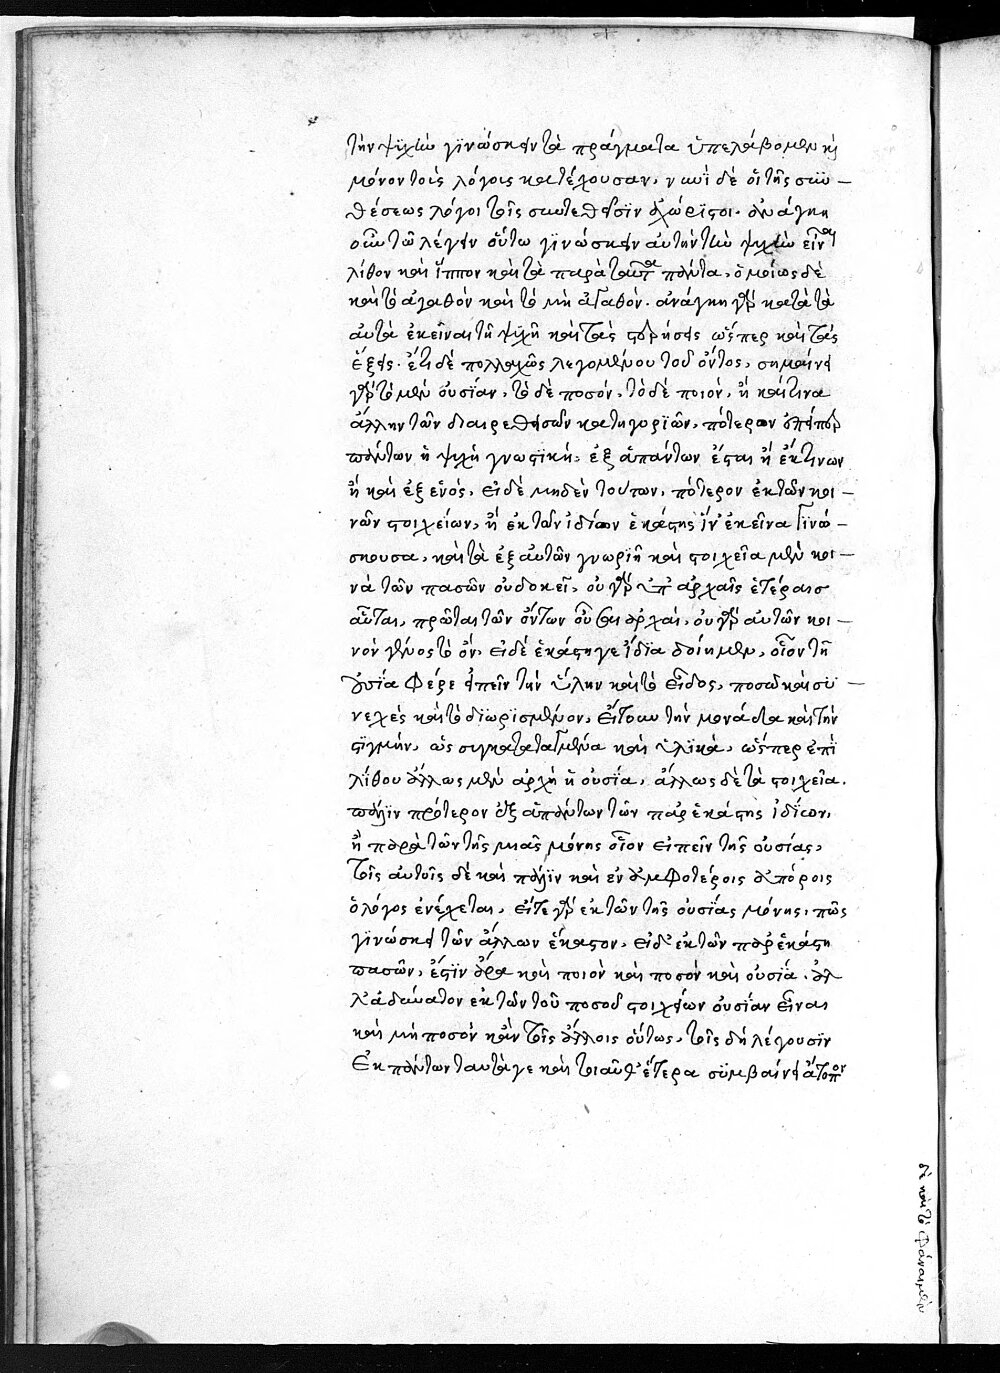 τὴν ψυχὴν γϊνώσκειν τὰ πράγματα ὑπελάβομεν κὶ
μόνον τοῖς λόγοις κατέχουσαν, νυνῒ δὲ οἱ τῆς συν
θέσεως λόγοι τοῖς συντεθεῖσϊν ἀχώρϊστοι. ἀνάγκη
οὖν τῶ λέγειν οὕτω γϊνώσκειν αὐτὴν τὴν ψυχὴν εἶναι
λίθον καὶ ἵππον καὶ τὰ παρὰ ταῦτα πάντα, ὁμοίως δὲ
καὶ τὸ ἀγαθὸν καὶ τὸ μὴ ἀγαθόν. ἀνάγκη γὰρ κατὰ τὰ
αὐτὰ ἐκεῖναι τῆ ψυχῆ καὶ τὰς στερήσεις ὥσπερ καὶ τὰς
ἕξεις. ἔτι δὲ πολλαχῶς λεγομένου τοῦ ὄντος, σημαίνει
γὰρ τὸ μὲν οὐσίαν, τὸ δὲ ποσόν, τὸ δὲ ποιόν, ἢ καί τινα
ἄλλην τῶν διαιρεθεισῶν κατηγορϊῶν, πότερον
πάντων ἡ ψυχὴ γνωστϊκή, ἐξ ἁπάντων ἔσται ἢ ἔκ τινων
ἢ καὶ ἐξ ἑνός, εἰ δὲ μηδὲν τούτων, πότερον ἐκ τῶν κοι
νῶν στοιχείων, ἢ ἐκ τῶν ἰδίων ἑκάστης ἵν' ἐκεῖνα γϊνώ
σκουσα, καὶ τὰ ἐξ αὐτῶν γνωρίζη καὶ στοιχεῖα μὲν κοι
νὰ τῶν πασῶν οὐ δοκεῖ, οὐ γὰρ ἐπ' ἀρχαῖς ἑτέραισ
αὗται, πρῶται τῶν ὄντων οὖσαι ἀρχαί, οὐ γὰρ αὐτῶν κοι
νὸν γένος τὸ ὄν, εἰ δὲ ἑκάστη γε ἴδϊα δοίημεν, οἷον τῆ
οὐσία φέρε εἰπεῖν τὴν ὕλην καὶ τὸ εἶδος, ποσῶ καὶ συ
νεχὲς καὶ τὸ δϊωρϊσμένον, εἴτουν τὴν μονάδα καὶ τὴν
στϊγμήν, ὡς συγκατατατΓμένα καὶ ὑλϊκά, ὥσπερ ἐπὶ
λίθου ἄλλως μὲν ἀρχὴ ἡ οὐσία, ἄλλως δὲ τὰ στοιχεῖα.
πάλϊν πρότερον ἐξ ἁπάντων τῶν παρ' ἑκάστης ἰδίων,
ἢ παρὰ τῶν τῆς μιᾶς μόνης οἷον εἰπεῖν τῆς οὐσίας,
τοῖς αὐτοῖς δὲ καὶ πάλϊν καὶ ἐν ἀμφοτέροις ἀπόροις
ὁ λόγος ἐνέχεται, εἴτε γὰρ ἐκ τῶν τῆς οὐσίας μόνης, πῶς
γϊνώσκει τῶν ἄλλων ἕκαστον, εἰ δ' ἐκ τῶν παρ' ἑκάστη
πασῶν, ἔστϊν ἄρα καὶ ποιὸν καὶ ποσὸν καὶ οὐσία. ἀλ
λ' ἀδύνατον ἐκ τῶν τοῦ ποσοῦ στοιχείων οὐσίαν εἶναι
καὶ μὴ ποσὸν κἂν τοῖς ἄλλοις οὕτως, τοῖς δὴ λέγουσϊν
Ἐκ πάντων ταυτά γε καὶ τοιαῦθ' ἕτερα συμβαίνει ἄτοπον
δὲ καὶ τὸ φάναι μὲν